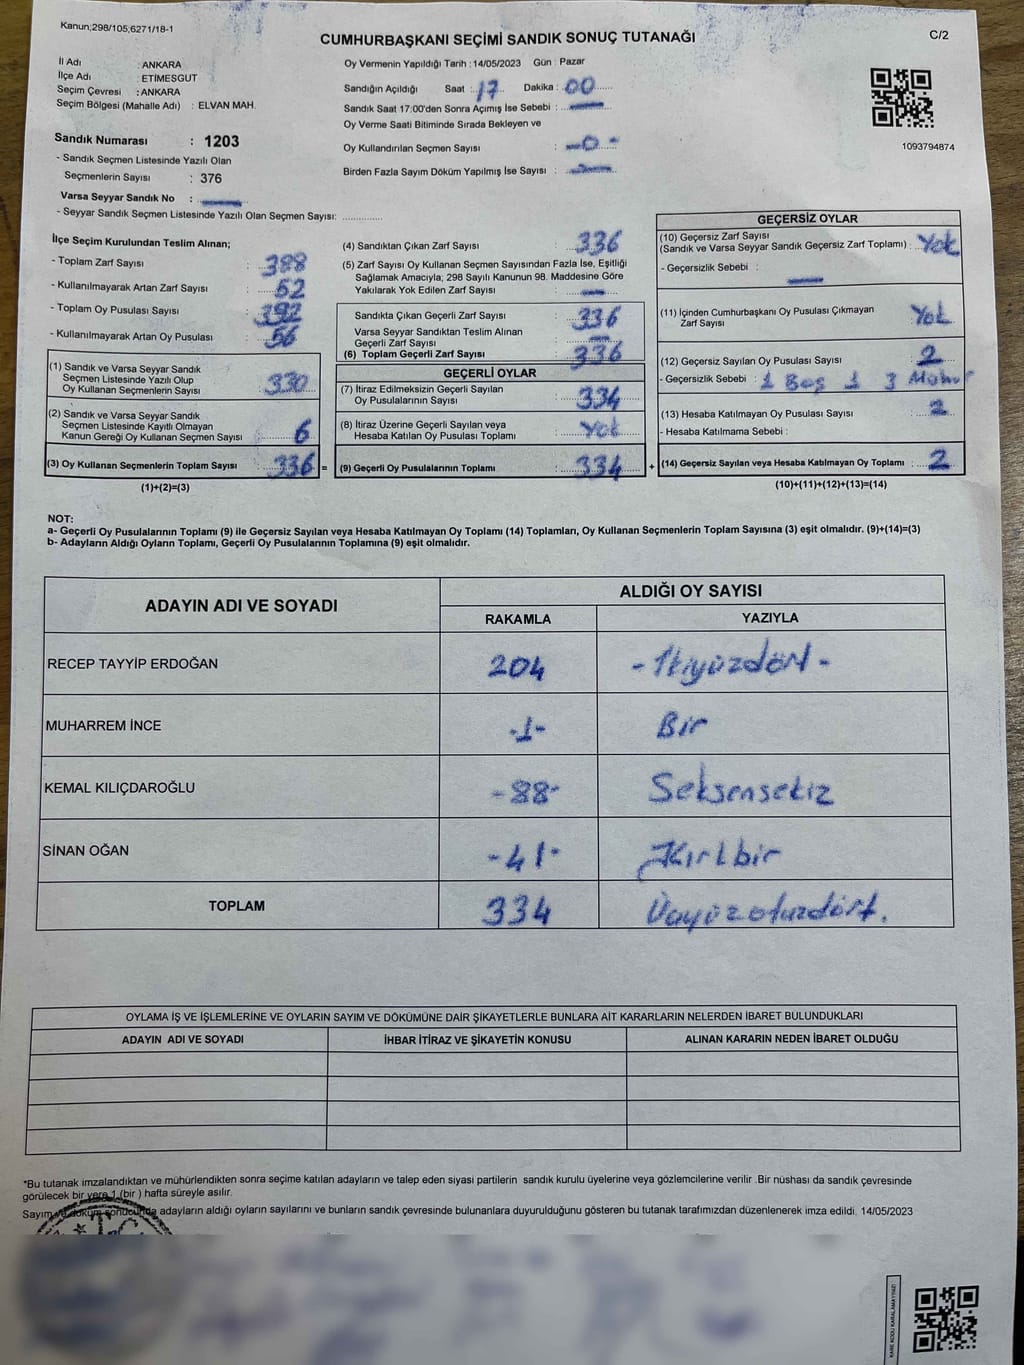 Kanun;298/105;6271/18-1
CUMHURBAŞKANI SEÇİMİ SANDIK SONUÇ TUTANAĞI
C/2
İl Adı : ANKARA
İlçe Adı : ETİMESGUT
Seçim Çevresi : ANKARA
Seçim Bölgesi (Mahalle Adı) : ELVAN MAH.
Oy Vermenin Yapıldığı Tarih : 14/05/2023 Gün : Pazar
Sandığın Açıldığı Saat : 17 Dakika : 00
Sandık Saat 17:00'den Sonra Açılmış İse Sebebi :
Oy Verme Saati Bitiminde Sırada Bekleyen ve
Oy Kullandırılan Seçmen Sayısı : -0-
Birden Fazla Sayım Döküm Yapılmış İse Sayısı :
1093794874
Sandık Numarası : 1203
- Sandık Seçmen Listesinde Yazılı Olan
Seçmenlerin Sayısı : 376
Varsa Seyyar Sandık No :
- Seyyar Sandık Seçmen Listesinde Yazılı Olan Seçmen Sayısı: ............
İlçe Seçim Kurulundan Teslim Alınan;
- Toplam Zarf Sayısı : 388
- Kullanılmayarak Artan Zarf Sayısı : 52
- Toplam Oy Pusulası Sayısı : 392
- Kullanılmayarak Artan Oy Pusulası : 56
(1) Sandık ve Varsa Seyyar Sandık
Seçmen Listesinde Yazılı Olup
Oy Kullanan Seçmenlerin Sayısı : 330
(2) Sandık ve Varsa Seyyar Sandık
Seçmen Listesinde Kayıtlı Olmayan
Kanun Gereği Oy Kullanan Seçmen Sayısı : 6
(3) Oy Kullanan Seçmenlerin Toplam Sayısı : 336 =
(1)+(2)=(3)
(4) Sandıktan Çıkan Zarf Sayısı : 336
(5) Zarf Sayısı Oy Kullanan Seçmen Sayısından Fazla İse, Eşitliği
Sağlamak Amacıyla; 298 Sayılı Kanunun 98. Maddesine Göre
Yakılarak Yok Edilen Zarf Sayısı :
Sandıkta Çıkan Geçerli Zarf Sayısı : 336
Varsa Seyyar Sandıktan Teslim Alınan
Geçerli Zarf Sayısı :
(6) Toplam Geçerli Zarf Sayısı : 336
GEÇERLİ OYLAR
(7) İtiraz Edilmeksizin Geçerli Sayılan
Oy Pusulalarının Sayısı : 334
(8) İtiraz Üzerine Geçerli Sayılan veya
Hesaba Katılan Oy Pusulası Toplamı : Yok
(9) Geçerli Oy Pusulalarının Toplamı : 334 +
GEÇERSİZ OYLAR
(10) Geçersiz Zarf Sayısı
(Sandık ve Varsa Seyyar Sandık Geçersiz Zarf Toplamı) : Yok
- Geçersizlik Sebebi :
(11) İçinden Cumhurbaşkanı Oy Pusulası Çıkmayan
Zarf Sayısı : Yok
(12) Geçersiz Sayılan Oy Pusulası Sayısı : 2
- Geçersizlik Sebebi : 1 Boş 1 3 Mühür
(13) Hesaba Katılmayan Oy Pusulası Sayısı : 2
- Hesaba Katılmama Sebebi :
(14) Geçersiz Sayılan veya Hesaba Katılmayan Oy Toplamı : 2
(10)+(11)+(12)+(13)=(14)
NOT:
a- Geçerli Oy Pusulalarının Toplamı (9) ile Geçersiz Sayılan veya Hesaba Katılmayan Oy Toplamı (14) Toplamları, Oy Kullanan Seçmenlerin Toplam Sayısına (3) eşit olmalıdır. (9)+(14)=(3)
b- Adayların Aldığı Oyların Toplamı, Geçerli Oy Pusulalarının Toplamına (9) eşit olmalıdır.
ADAYIN ADI VE SOYADI
ALDIĞI OY SAYISI
RAKAMLA YAZIYLA
RECEP TAYYİP ERDOĞAN 204 - İkiyüzdört -
MUHARREM İNCE -1- Bir
KEMAL KILIÇDAROĞLU -88- Seksensekiz
SİNAN OĞAN -41- Kırkbir
TOPLAM 334 Üçyüzotuzdört.
OYLAMA İŞ VE İŞLEMLERİNE VE OYLARIN SAYIM VE DÖKÜMÜNE DAİR ŞİKAYETLERLE BUNLARA AİT KARARLARIN NELERDEN İBARET BULUNDUKLARI
ADAYIN ADI VE SOYADI İHBAR İTİRAZ VE ŞİKAYETİN KONUSU ALINAN KARARIN NEDEN İBARET OLDUĞU
*Bu tutanak imzalandıktan ve mühürlendikten sonra seçime katılan adayların ve talep eden siyasi partilerin sandık kurulu üyelerine veya gözlemcilerine verilir .Bir nüshası da sandık çevresinde
görülecek bir yere 1 (bir ) hafta süreyle asılır.
Sayım ve döküm sonucunda adayların aldığı oyların sayılarını ve bunların sandık çevresinde bulunanlara duyurulduğunu gösteren bu tutanak tarafımızdan düzenlenerek imza edildi. 14/05/2023
T.C.
KARE KODU KARALAMAYINIZ!